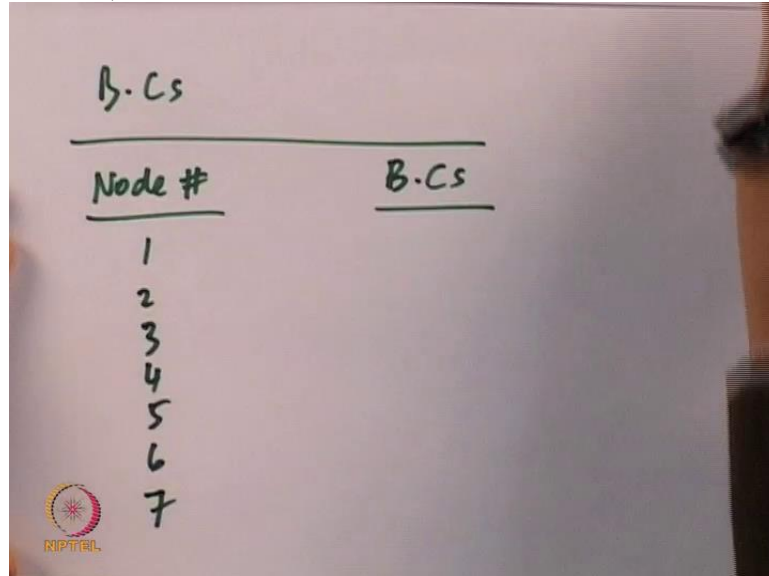 B.Cs
Node # B.Cs
1
2
3
4
5
6
7
NPTEL